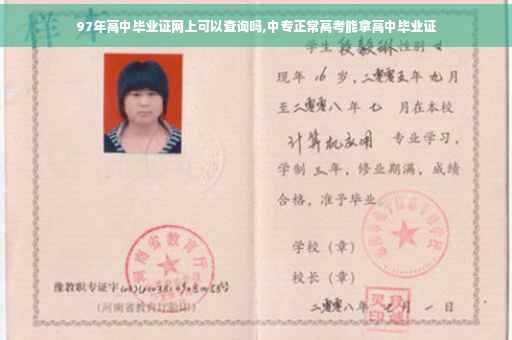 97年高中毕业证网上可以查询吗,中专正常高考能拿高中毕业证
样本
学生 段毅琳 性别 女
现年 16 岁,二零零五年 九月
至二零零八年 七 月在本校
计算机应用 专业学习,
学制 三年,修业期满,成绩
合格,准予毕业
学校(章)
校长(章)
二零零八年 月 一 日
河南省教育厅
豫教职专证字
(河南省教育厅验印)